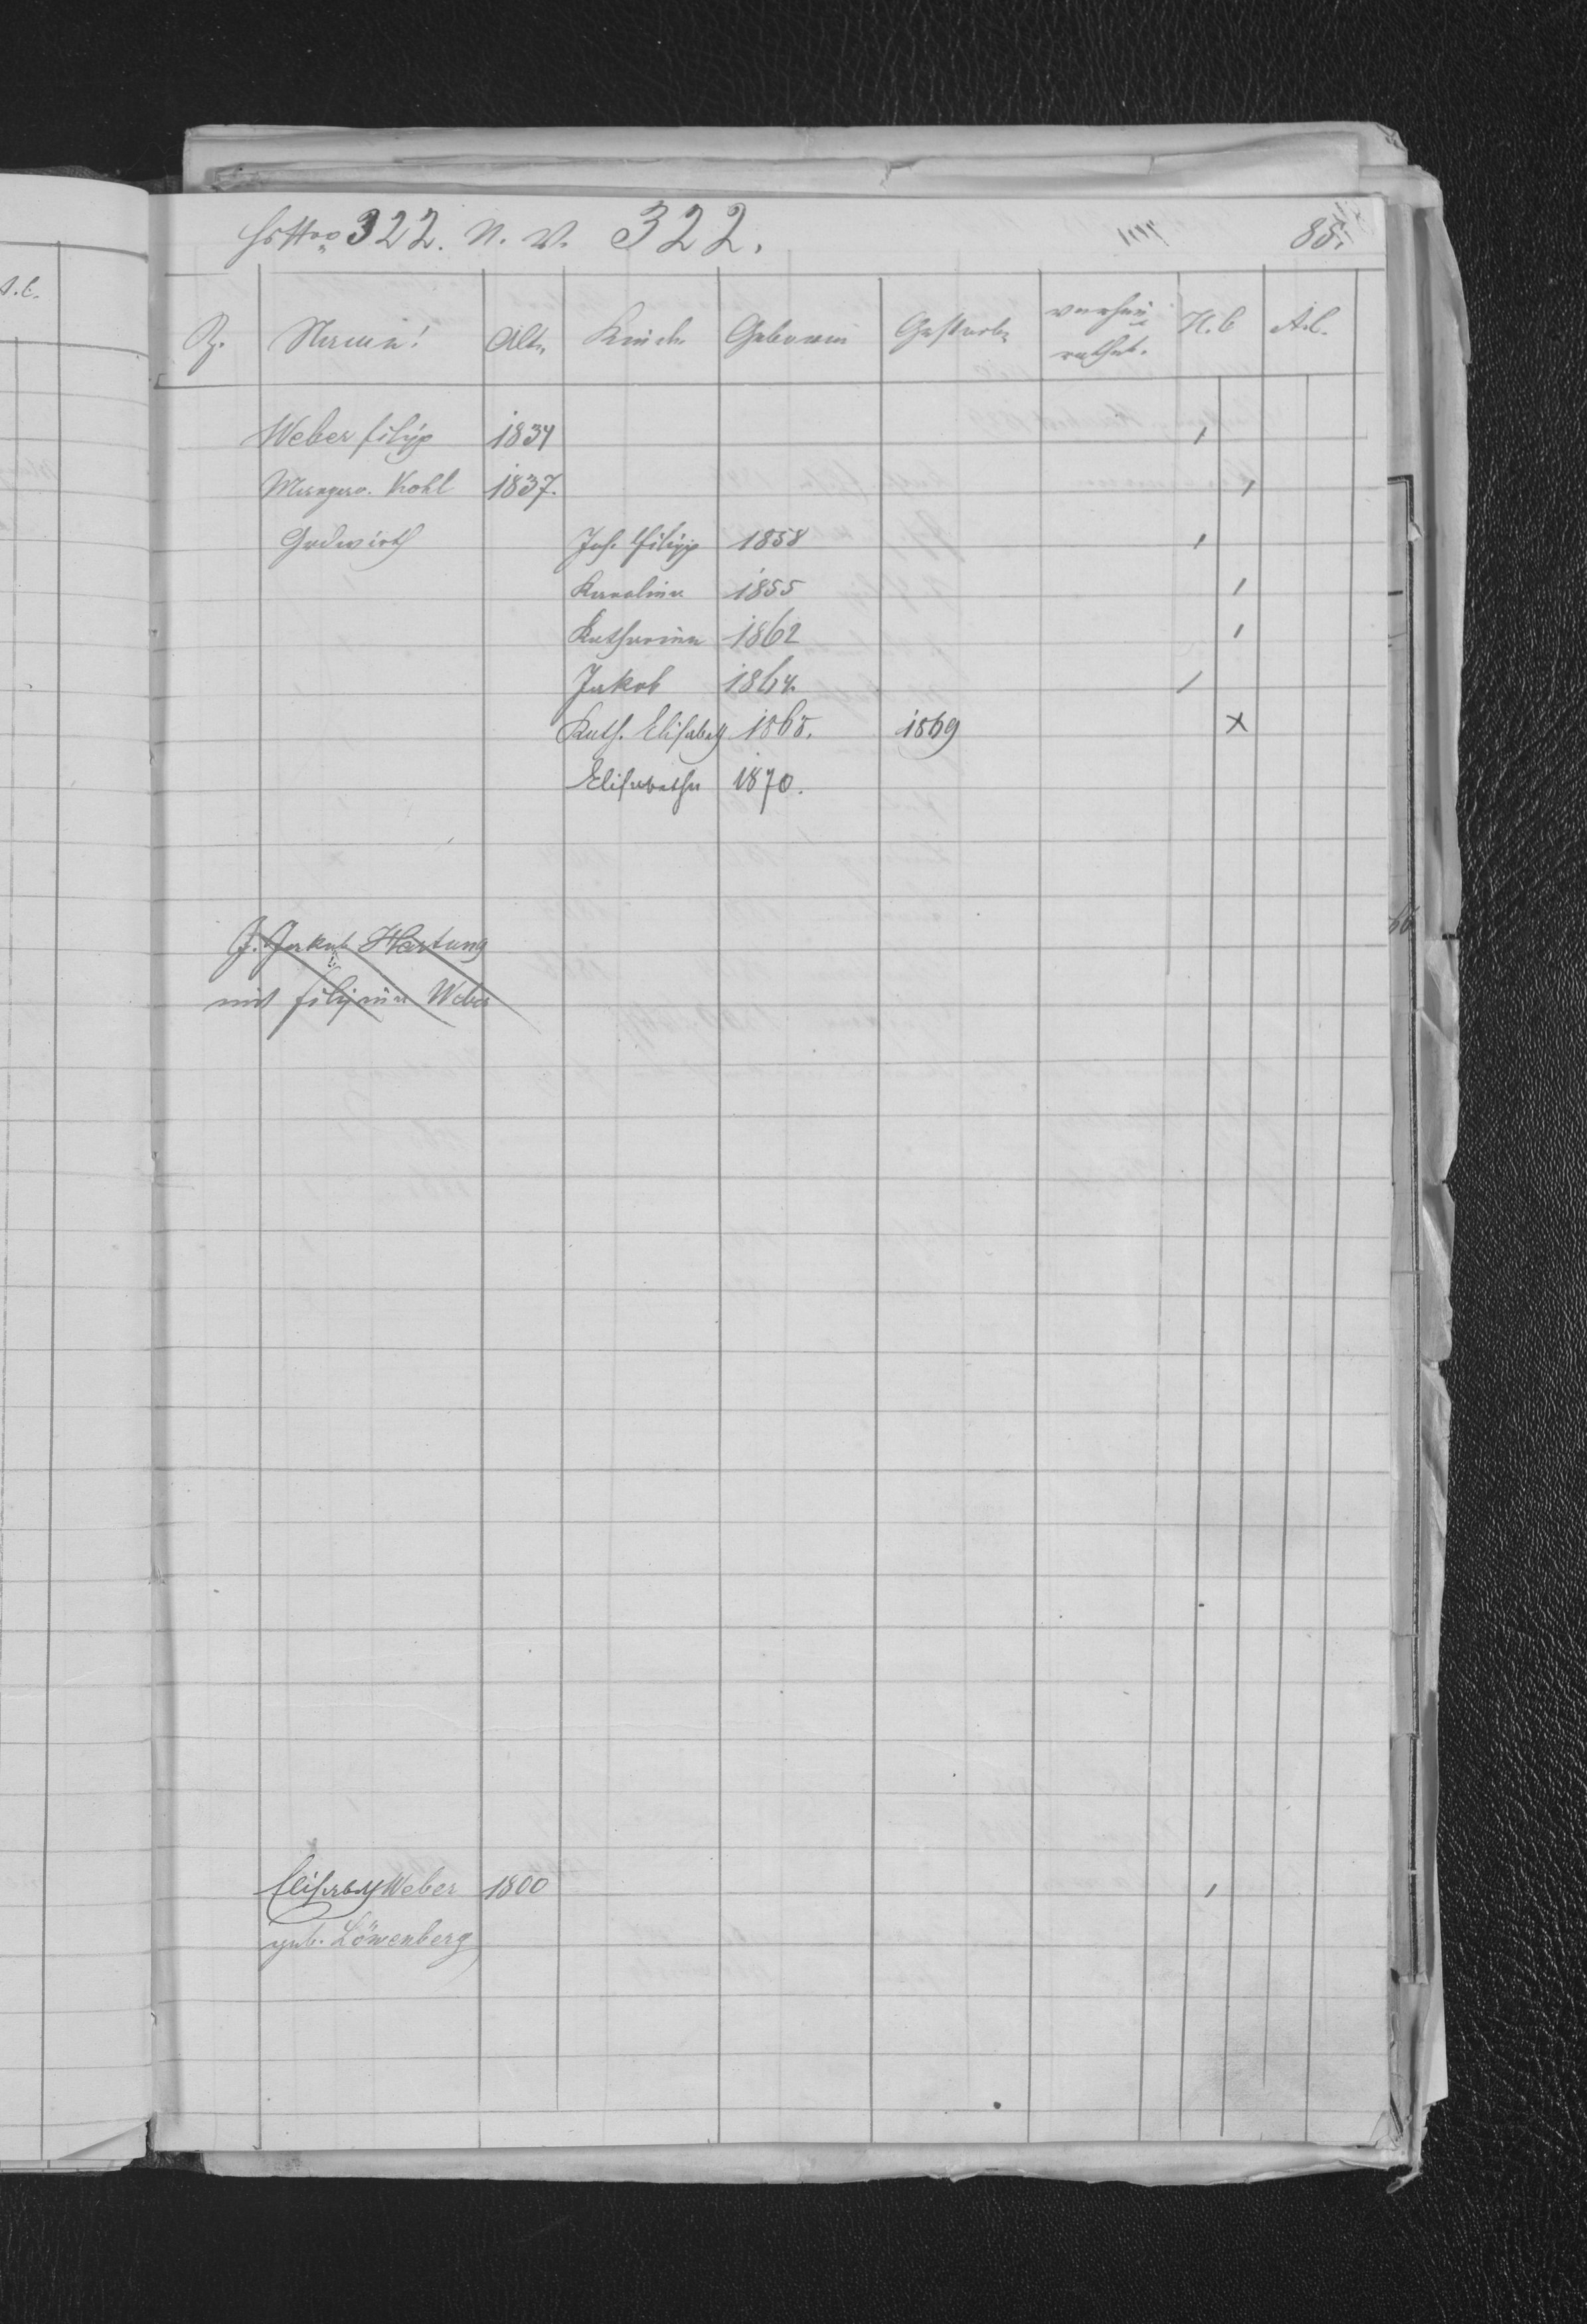 322. N. W. 322. 85.
Z. Namen! Alt. Kinder Geboren Gestorbn verhei
rathet. H.b A.b.
Weber Filipp 1834
Margara. Kohl 1837.
Gadwirth Joh. Filipp 1858
Karolina 1855
Katharina 1862
Jakob 1864.
Kath. Elisabeth 1865. 1869 x
Elisabetha 1870.
J. Jakob Hartung
mit Filipina Weber
Elisabeth Weber 1800
geb. Löwenberg